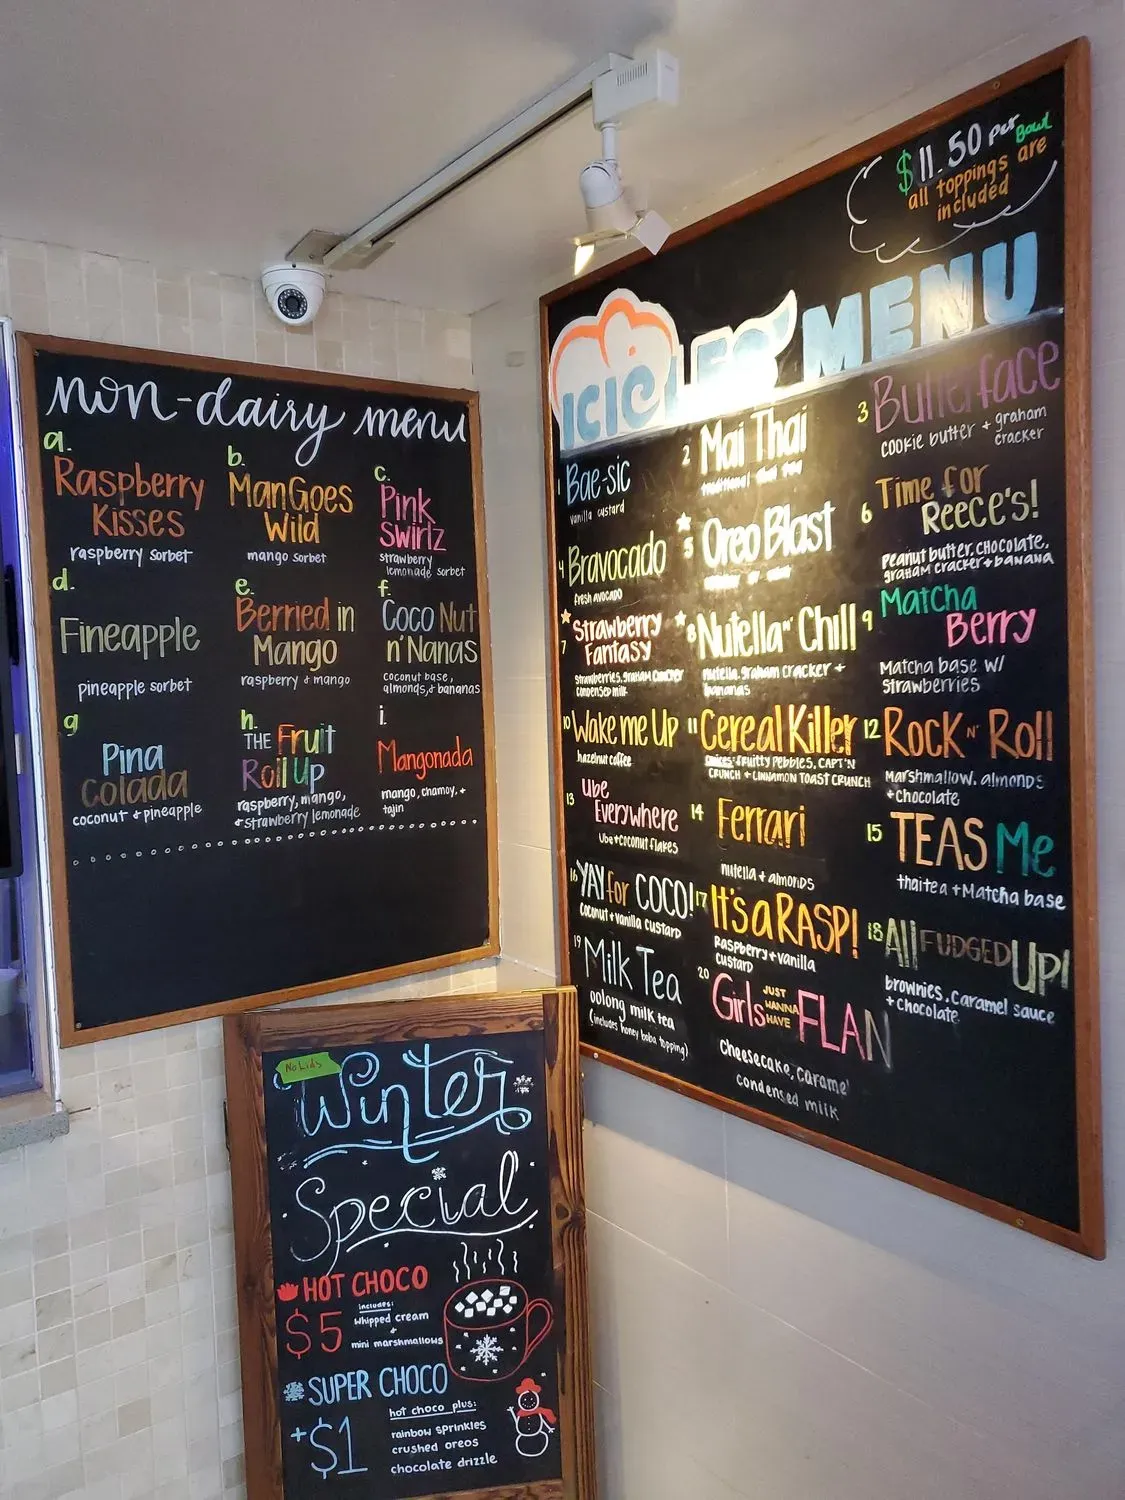 non-dairy menu
a.
Raspberry
Kisses
raspberry sorbet
b.
ManGoes
Wild
mango sorbet
c.
Pink
Swirlz
strawberry
lemonade sorbet
d.
Fineapple
pineapple sorbet
e.
Berried in
Mango
raspberry & mango
f.
Coco Nut
n' Nanas
coconut base,
almonds, & bananas
g
Pina
Colada
coconut & pineapple
h.
THE Fruit
Roll Up
raspberry, mango,
& strawberry lemonade
i.
Mangonada
mango, chamoy, &
tajin
$11.50 per Bowl
all toppings are
included
ICICLES' MENU
1 Bae-sic
vanilla custard
2 Mai Thai
traditional thai tea
3 Butterface
cookie butter + graham
cracker
4 Bravocado
fresh avocado
5 Oreo Blast
6 Time for
Reece's!
Peanut butter, chocolate,
graham cracker + banana
7 Strawberry
Fantasy
strawberries, graham cracker
condensed milk
8 Nutella n' Chill
nutella, graham cracker +
bananas
9 Matcha
Berry
Matcha base w/
Strawberries
10 Wake me Up
hazelnut coffee
11 Cereal Killer
choices: fruitty pebbles, capt'n
crunch + cinnamon toast crunch
12 Rock n' Roll
Marshmallow, almonds
+ chocolate
13 Ube
Everywhere
Ube + coconut flakes
14 Ferrari
nutella + almonds
15 TEAS Me
thai tea + Matcha base
16 YAY for COCO!
coconut + vanilla custard
17 It's a RASP!
Raspberry + vanilla
custard
18 All FUDGED UP!
brownies, caramel sauce
+ chocolate
19 Milk Tea
oolong milk tea
(includes honey boba topping)
20 Girls JUST WANNA HAVE FLAN
Cheesecake, caramel
condensed milk
No Lids
Winter
Special
HOT CHOCO
$5
includes:
whipped cream
+
mini marshmallows
SUPER CHOCO
+$1
hot choco plus:
rainbow sprinkles
crushed oreos
chocolate drizzle